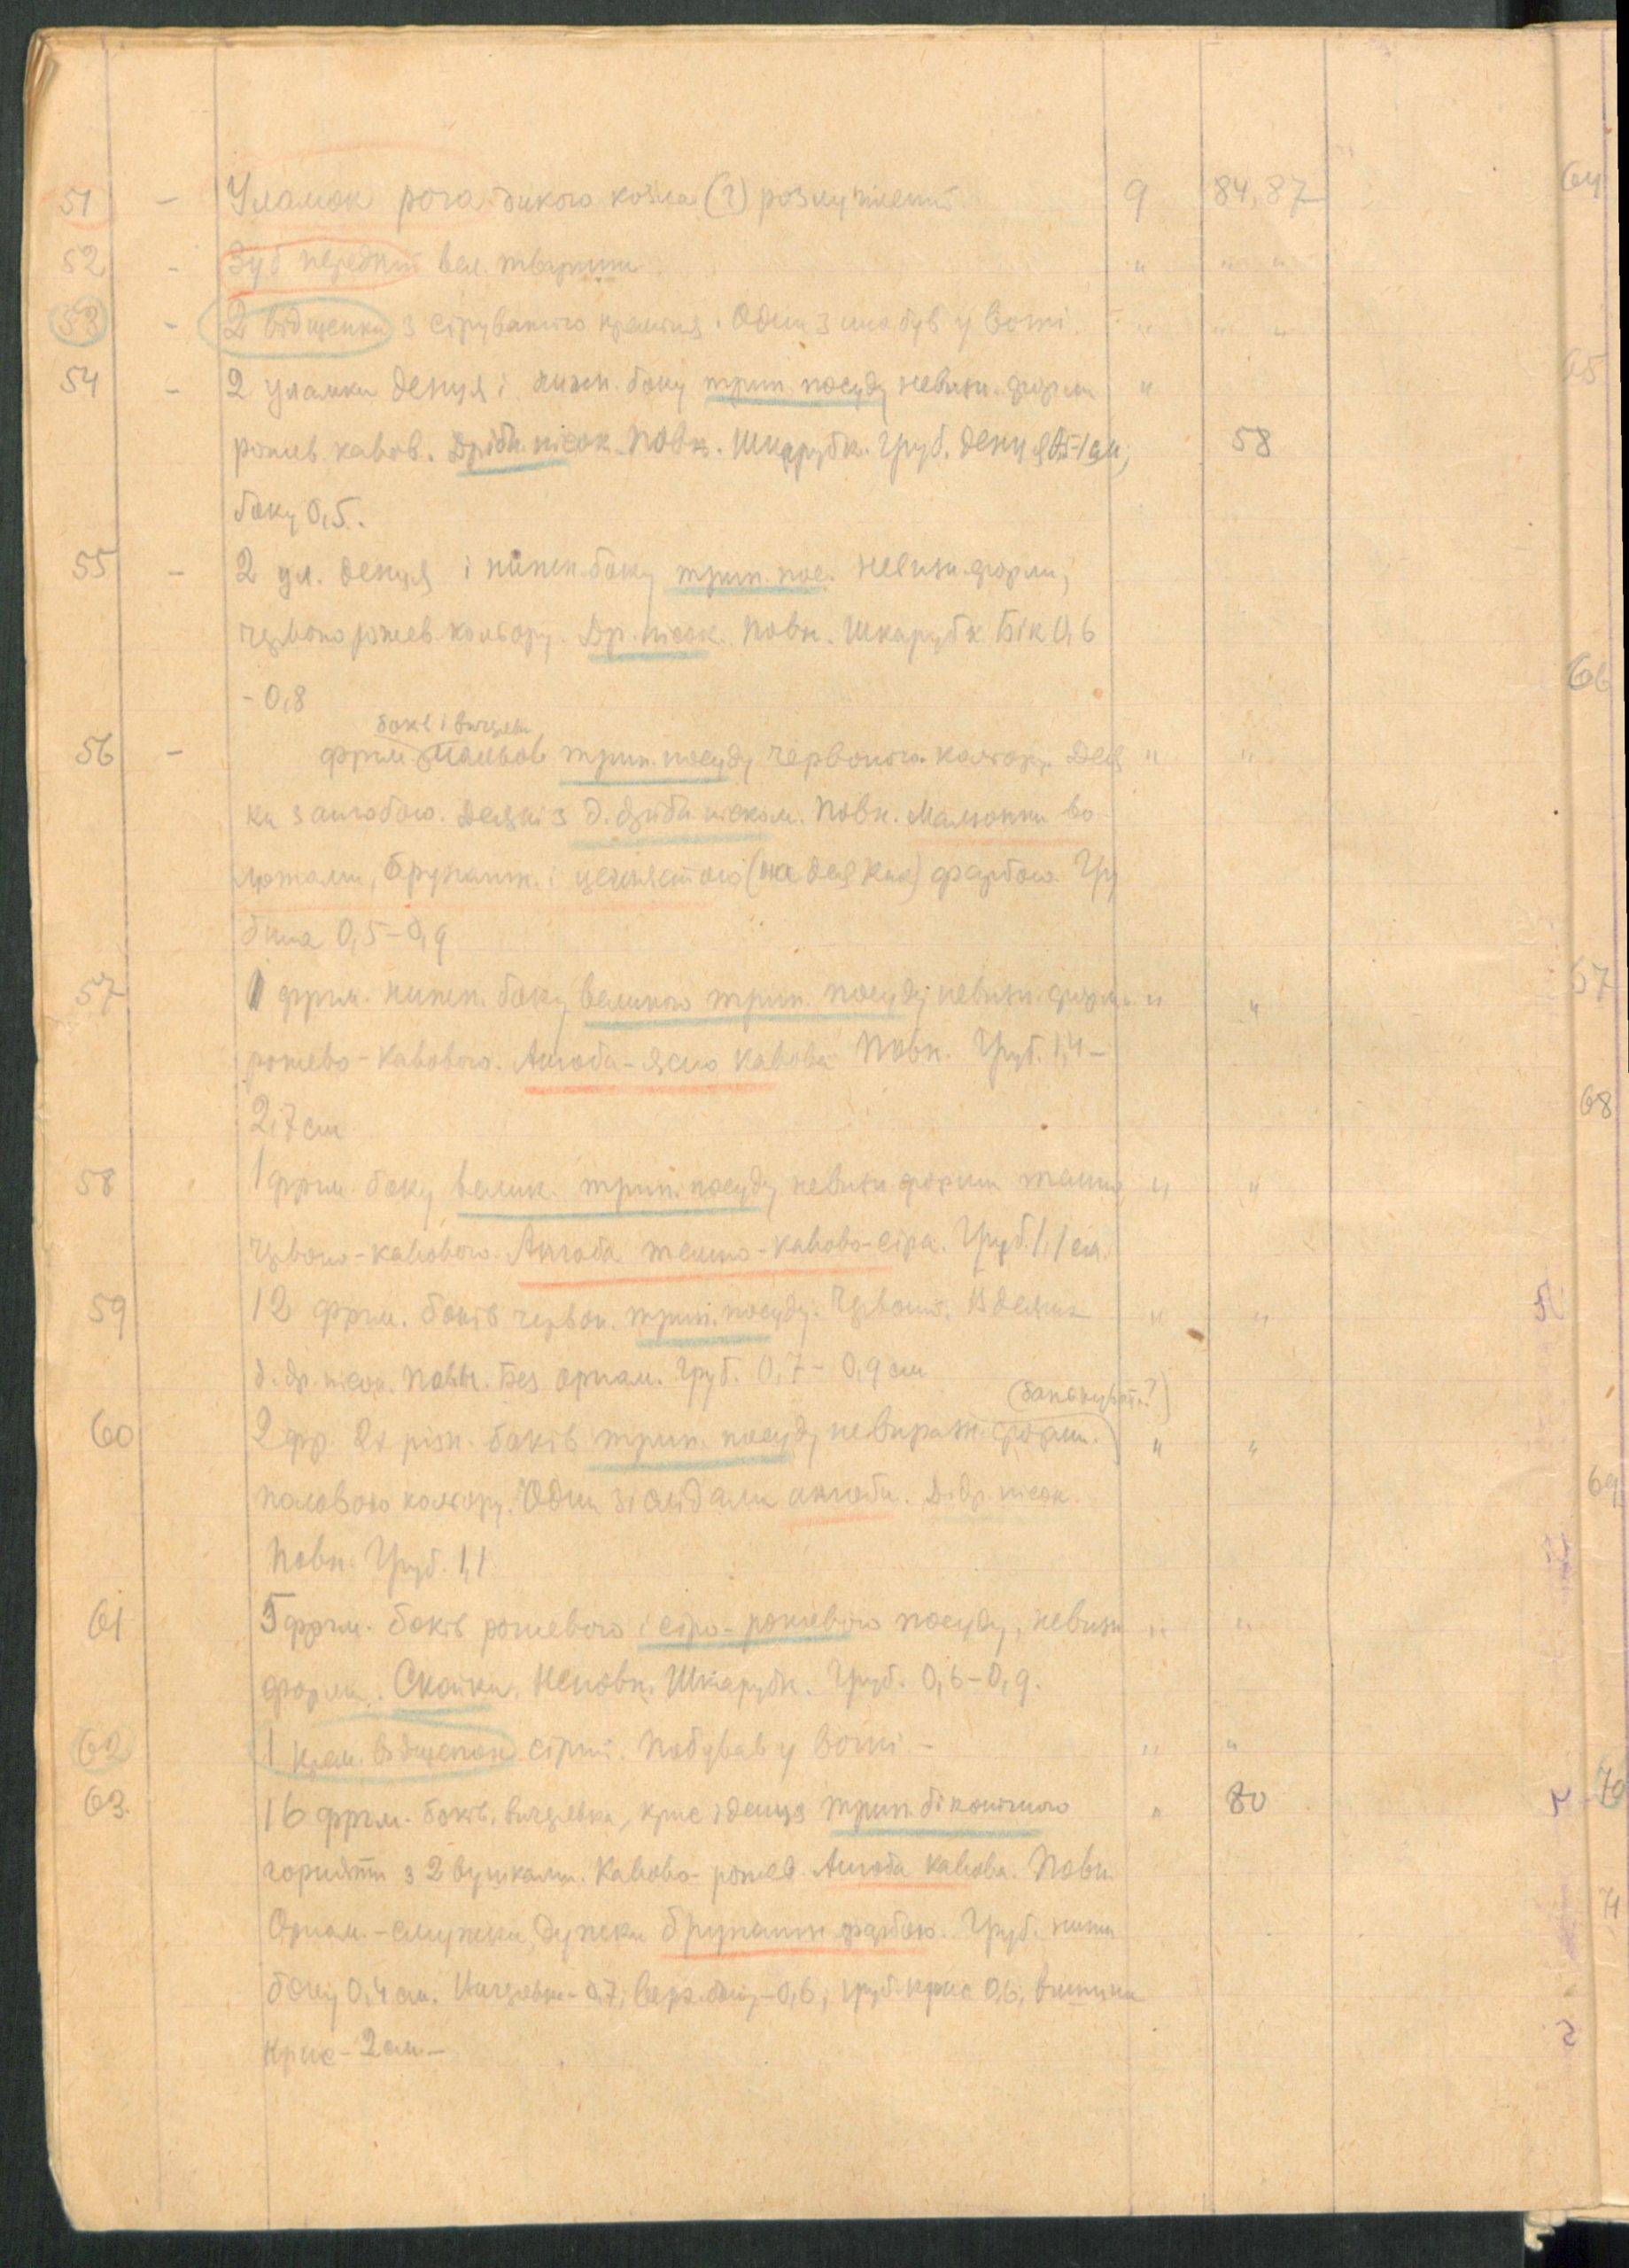 51 - Уламок рога дикого козла (?) 9 84, 87
52 - Зуб передній вел. тварини. " " "
53 - 2 відщепки з сіруватого кременя. Один з них був у вогні. " " "
54 - 2 уламки денця і нижн. боку трип. посуду невизн. форми "
рожев. кавов. Дрібн. пісок. Повн. Шкарубк. Груб. денця 0,5-1 см; 58
боку 0,5.
55 - 2 ул. денця і нижн. боку трип. пос. невизн. форми,
червоно рожев. кольору. Др. пісок. Повн. Шкарубк. Бік 0,6
- 0,8
боків і вінчиків
56 - фргм. мальов. трип. посуду червоного кольору. Дея " "
кі з ангобою. Деякі з д. дрібн. піском. Повн. Малюнки во
лютами, брунатн. і (на деяких) фарбою. Гру
бина 0,5-0,9
57 1 фргм. нижн. боку великого трип. посуду невизн. форми " "
рожево-кавового. Ангоба-ясно кавова. Повн. Груб. 1,4-
2,7 см
58 1 фргм. боку велик. трип. посуду невизн форми темно " "
червоно-кавового. Ангоба темно-кавово-сіра. Груб. 1,1 см.
59 12 фргм. боків червон. трип. посуду. В деяких " "
д. др. пісок. Повн. Без орнам. Груб. 0,7-0,9 см
60 2 фр. 2х різн. боків трип. посуду невиразн. форми. " "
полового кольору. Один зі слідами ангоби. Д. др. пісок.
Повн. Груб. 1,1
61 5 фргм. боків рожевого і сіро-рожевого посуду, невизн " "
форми. Скойки. Неповн. Шкарубк. Груб. 0,6-0,9.
62 1 крем. відщепок сірий. Побував у вогні - " "
63. 16 фргм. боків, вінчика, крис і денця трип. біконічного " 80
горняти з 2 вушками. Кавово-рожев. Ангоба кавова. Повн.
Орнам.-смужки, дужки брунатн. фарбою. Груб. нижн
боку 0,4 см. 0,7; верх. боку-0,6; груб. крис 0,6;
крис-2 см-